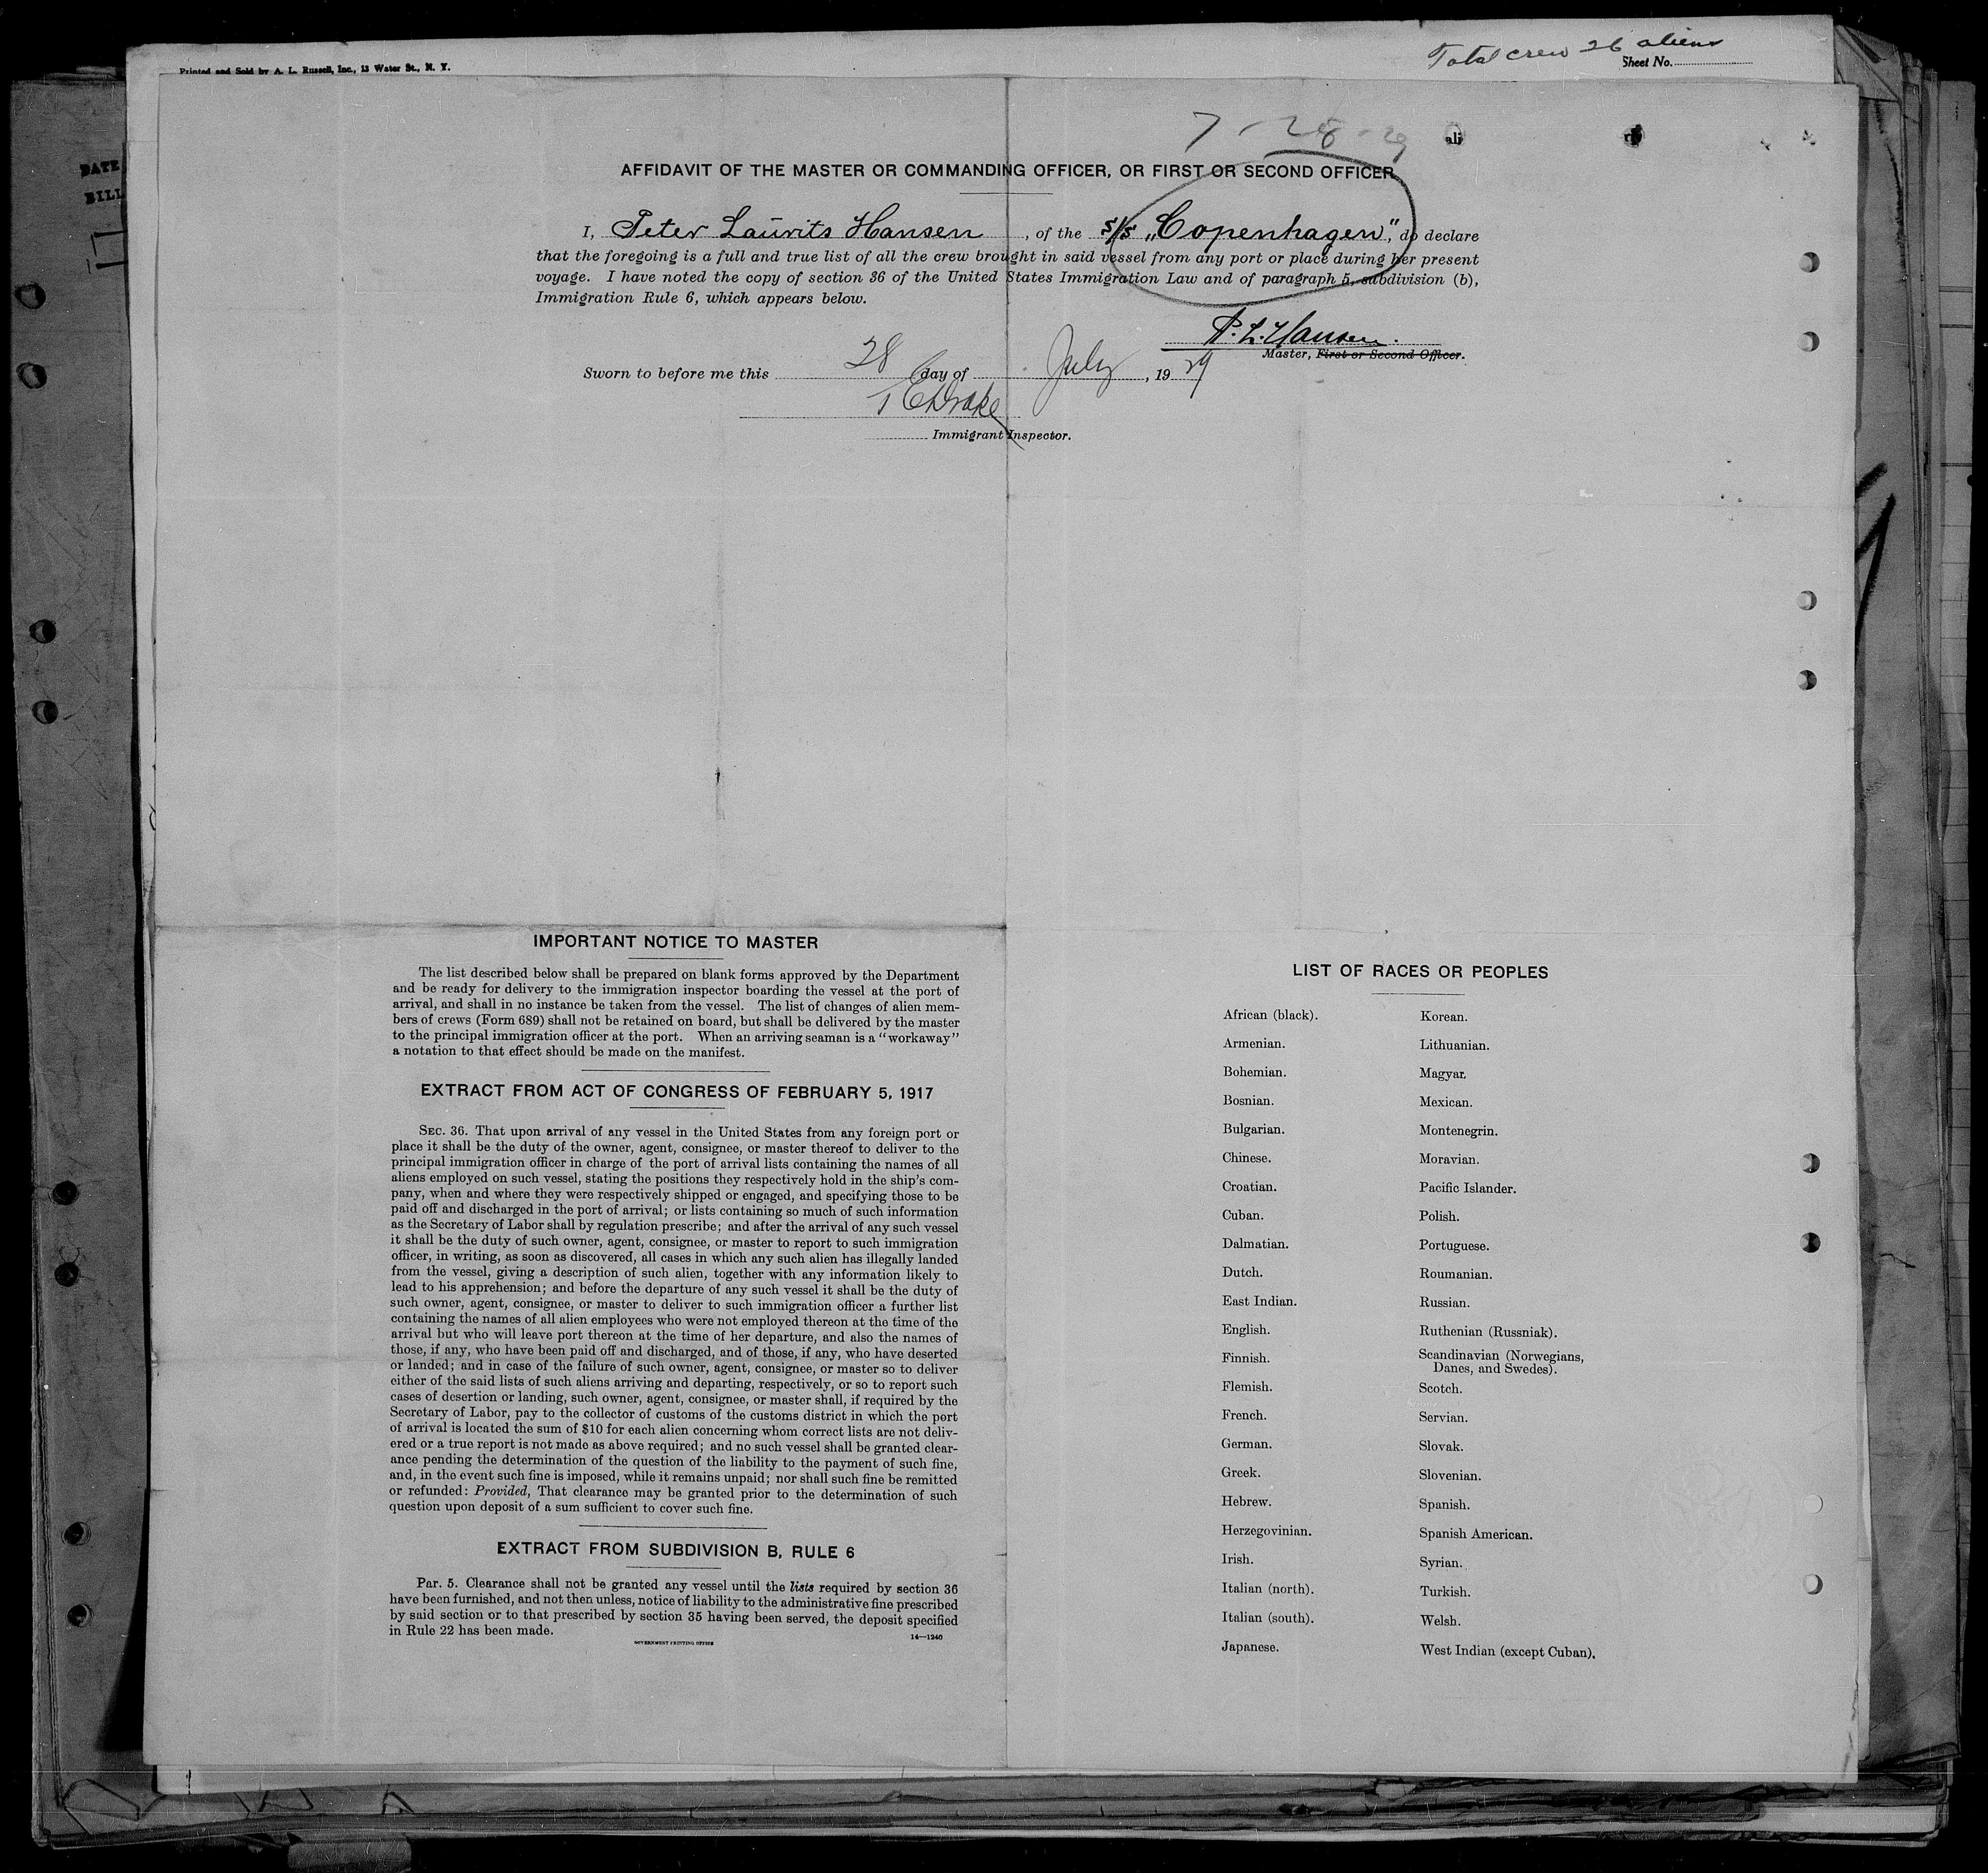 Total crew 26 aliens
Printed and Sold by A. L. Russell, Inc., 13 Water St., N. Y.
Sheet No.
7 - 28 - 29
DATE
BILL
AFFIDAVIT OF THE MASTER OR COMMANDING OFFICER, OR FIRST OR SECOND OFFICER
I, Peter Laurits Hansen, of the S/S „Copenhagen", do declare
that the foregoing is a full and true list of all the crew brought in said vessel from any port or place during her present
voyage. I have noted the copy of section 36 of the United States Immigration Law and of paragraph 5, subdivision (b),
Immigration Rule 6, which appears below.
P. L. Hansen.
Master, First or Second Officer.
Sworn to before me this 28 day of July, 1929
Drake
Immigrant Inspector.
IMPORTANT NOTICE TO MASTER
The list described below shall be prepared on blank forms approved by the Department
and be ready for delivery to the immigration inspector boarding the vessel at the port of
arrival, and shall in no instance be taken from the vessel. The list of changes of alien mem-
bers of crews (Form 689) shall not be retained on board, but shall be delivered by the master
to the principal immigration officer at the port. When an arriving seaman is a "workaway"
a notation to that effect should be made on the manifest.
EXTRACT FROM ACT OF CONGRESS OF FEBRUARY 5, 1917
SEC. 36. That upon arrival of any vessel in the United States from any foreign port or
place it shall be the duty of the owner, agent, consignee, or master thereof to deliver to the
principal immigration officer in charge of the port of arrival lists containing the names of all
aliens employed on such vessel, stating the positions they respectively hold in the ship's com-
pany, when and where they were respectively shipped or engaged, and specifying those to be
paid off and discharged in the port of arrival; or lists containing so much of such information
as the Secretary of Labor shall by regulation prescribe; and after the arrival of any such vessel
it shall be the duty of such owner, agent, consignee, or master to report to such immigration
officer, in writing, as soon as discovered, all cases in which any such alien has illegally landed
from the vessel, giving a description of such alien, together with any information likely to
lead to his apprehension; and before the departure of any such vessel it shall be the duty of
such owner, agent, consignee, or master to deliver to such immigration officer a further list
containing the names of all alien employees who were not employed thereon at the time of the
arrival but who will leave port thereon at the time of her departure, and also the names of
those, if any, who have been paid off and discharged, and of those, if any, who have deserted
or landed; and in case of the failure of such owner, agent, consignee, or master so to deliver
either of the said lists of such aliens arriving and departing, respectively, or so to report such
cases of desertion or landing, such owner, agent, consignee, or master shall, if required by the
Secretary of Labor, pay to the collector of customs of the customs district in which the port
of arrival is located the sum of $10 for each alien concerning whom correct lists are not deliv-
ered or a true report is not made as above required; and no such vessel shall be granted clear-
ance pending the determination of the question of the liability to the payment of such fine,
and, in the event such fine is imposed, while it remains unpaid; nor shall such fine be remitted
or refunded: Provided, That clearance may be granted prior to the determination of such
question upon deposit of a sum sufficient to cover such fine.
EXTRACT FROM SUBDIVISION B, RULE 6
Par. 5. Clearance shall not be granted any vessel until the lists required by section 36
have been furnished, and not then unless, notice of liability to the administrative fine prescribed
by said section or to that prescribed by section 35 having been served, the deposit specified
in Rule 22 has been made.
GOVERNMENT PRINTING OFFICE
14—1240
LIST OF RACES OR PEOPLES
African (black).
Armenian.
Bohemian.
Bosnian.
Bulgarian.
Chinese.
Croatian.
Cuban.
Dalmatian.
Dutch.
East Indian.
English.
Finnish.
Flemish.
French.
German.
Greek.
Hebrew.
Herzegovinian.
Irish.
Italian (north).
Italian (south).
Japanese.
Korean.
Lithuanian.
Magyar.
Mexican.
Montenegrin.
Moravian.
Pacific Islander.
Polish.
Portuguese.
Roumanian.
Russian.
Ruthenian (Russniak).
Scandinavian (Norwegians,
Danes, and Swedes).
Scotch.
Servian.
Slovak.
Slovenian.
Spanish.
Spanish American.
Syrian.
Turkish.
Welsh.
West Indian (except Cuban).